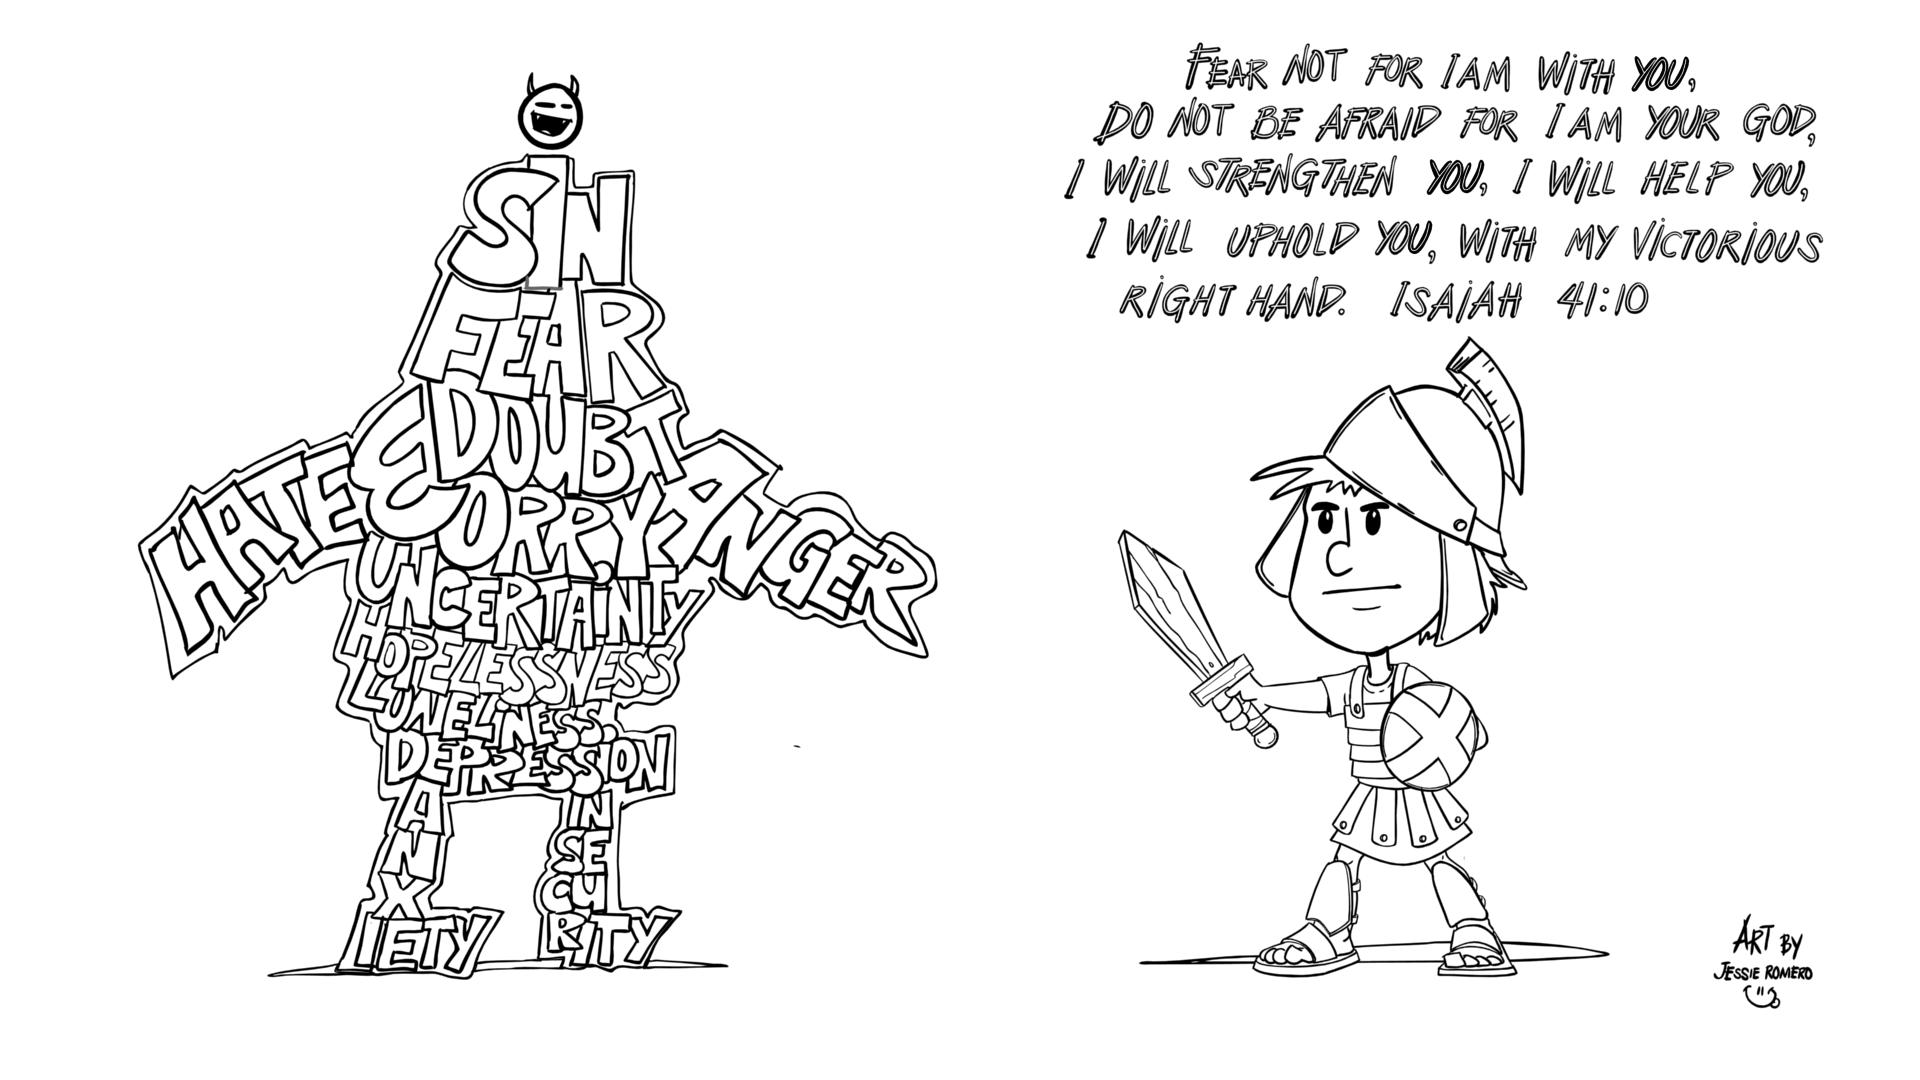 SIN
FEAR
DOUBT
HATE
WORRY
ANGER
UNCERTAINTY
HOPELESSNESS
LONELINESS
DEPRESSION
ANXIETY
INSECURITY
FEAR NOT FOR I AM WITH YOU,
DO NOT BE AFRAID FOR I AM YOUR GOD,
I WILL STRENGTHEN YOU, I WILL HELP YOU,
I WILL UPHOLD YOU, WITH MY VICTORIOUS
RIGHT HAND. ISAIAH 41:10
ART BY
JESSIE ROMERO